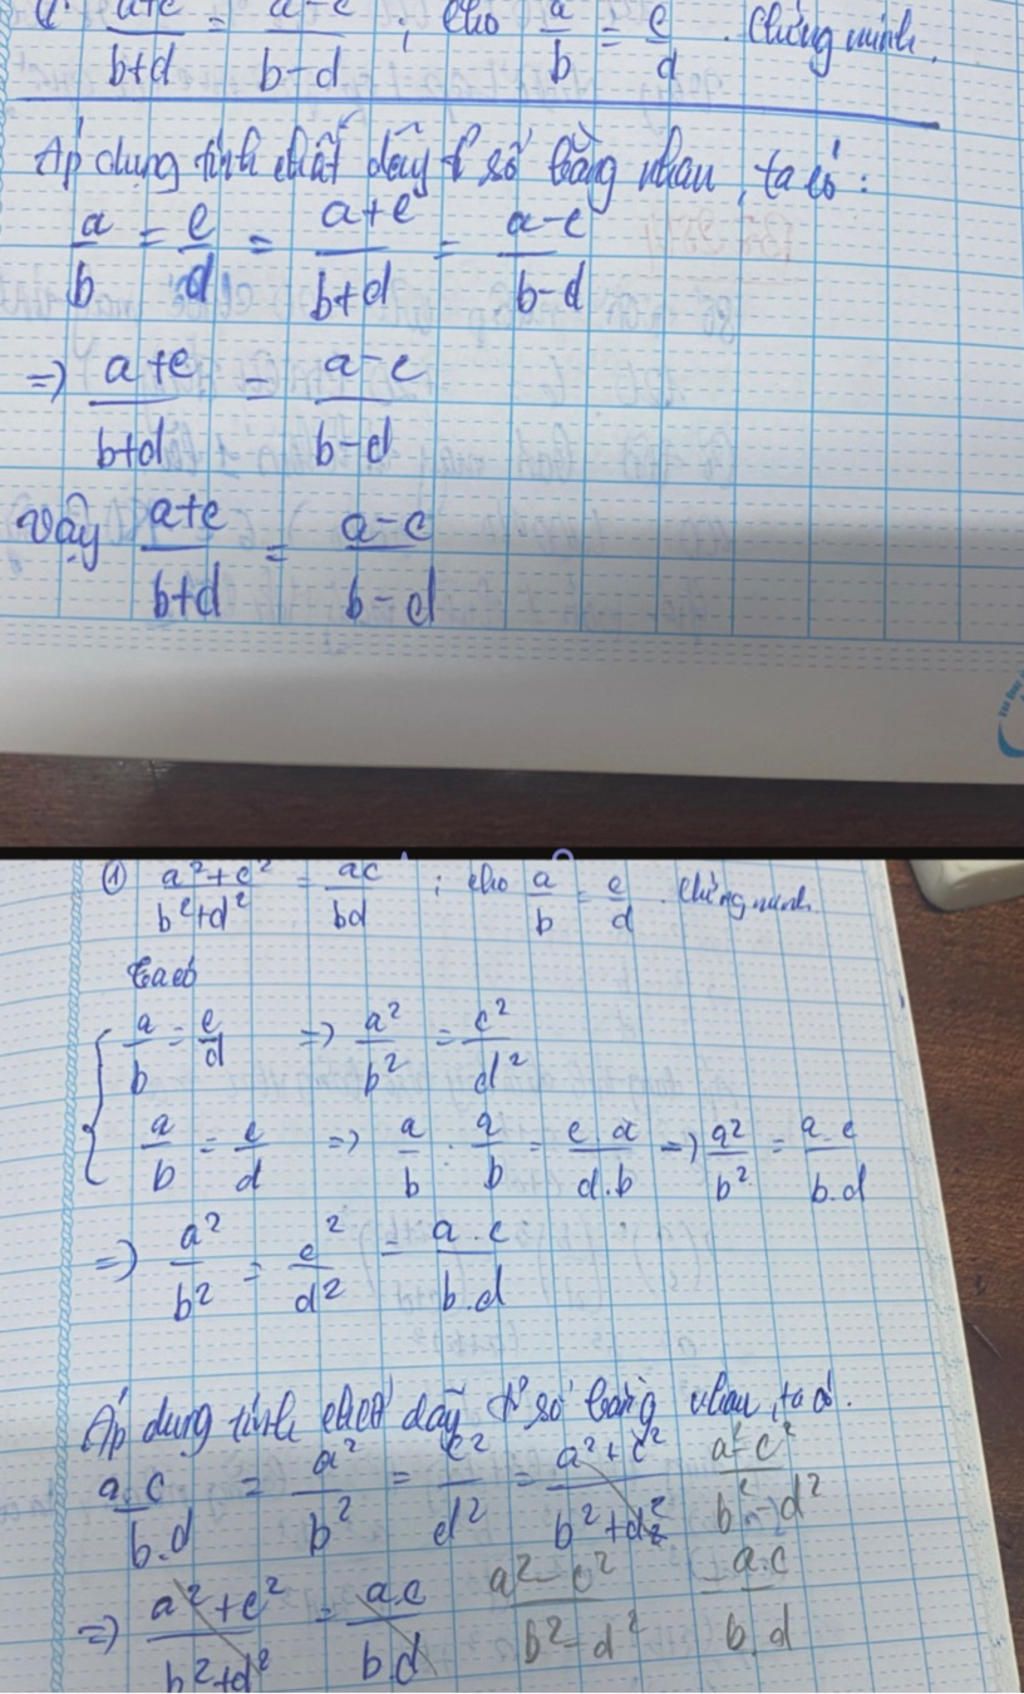 a+c/b+d = a-c/b-d ; cho a/b = c/d . Chứng minh.
Áp dụng tính chất dãy tỉ số bằng nhau, ta có :
a/b = c/d = a+c/b+d = a-c/b-d
=> a+c/b+d = a-c/b-d
Vậy a+c/b+d = a-c/b-d
① a²+c²/b²+d² = ac/bd ; cho a/b = c/d . Chứng minh.
Ta có
{ a/b = c/d => a²/b² = c²/d²
a/b = c/d => a/b . a/b = c.a/d.b => a²/b² = a.c/b.d
=> a²/b² = c²/d² = a.c/b.d
Áp dụng tính chất dãy tỉ số bằng nhau, ta có.
a.c/b.d = a²/b² = c²/d² = a²+c²/b²+d² a²-c²/b²-d²
=> a²+c²/b²+d² = a.c/b.d a²-c²/b²-d² = a.c/b.d